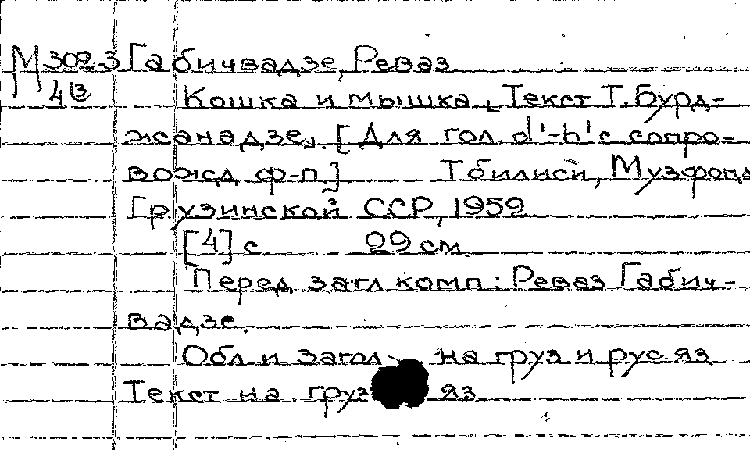 М 302-3 Габичвадзе, Реваз
413 Кошка и мышка. Текст Т. Бурд-
жанадзе. [Для гол. d'-h' с сопро-
вожд ф-п.] Тбилиси, Музфонд
Грузинской ССР, 1959
[4] с 29 см.
Перед загл комп: Реваз Габич-
вадзе.
Обл и загол на груз и рус яз
Текст на груз яз